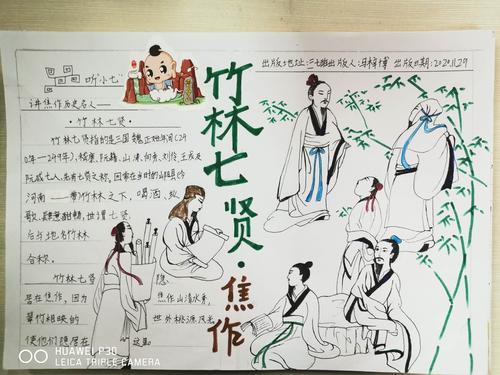 听"小七"
讲焦作历史名人——
·竹林七贤·
竹林七贤指的是三国魏正始年间(24
0年—249年),嵇康、阮籍、山涛、向秀、刘伶、王戎及
阮咸七人,先有七贤之称。因常在当时的山阳县
河南 一带竹林之下,喝酒、纵
歌,肆意酣畅,世谓七贤,
后与地名竹林
合称。
竹林七贤 隐
居在焦作,因为 焦作山清水秀,
翠竹相映的 世外桃源风光
使他们隐居在 这里
竹林七贤·焦作
出版地址:三七班 出版人:冯梓博 出版日期:2020.11.29
HUAWEI P30
LEICA TRIPLE CAMERA